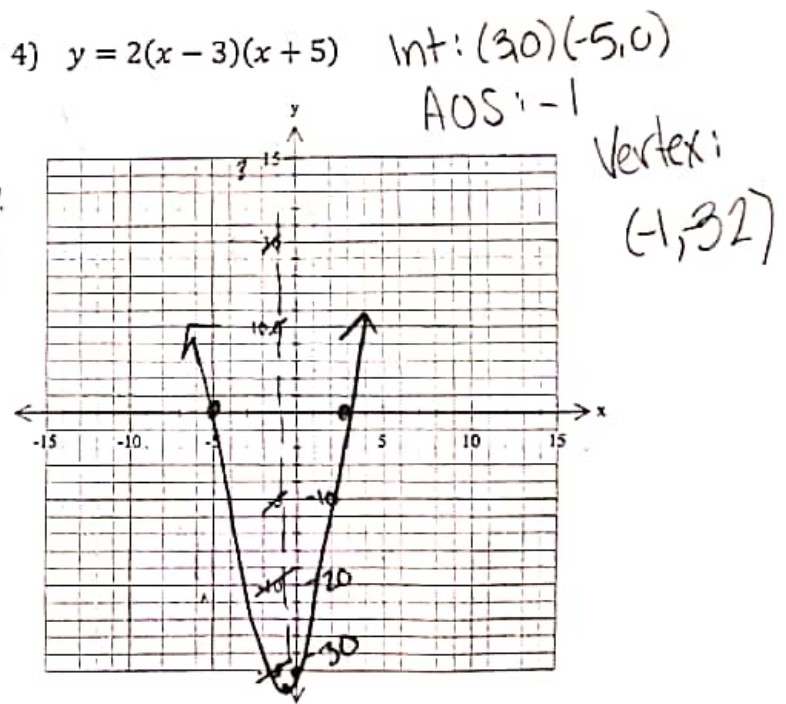 4) y = 2(x − 3)(x + 5) Int: (3,0)(-5,0)
AOS: -1
Vertex:
(-1,-32)
y
15
10
x
-15 -10 -5 5 10 15
-10
-20
-30